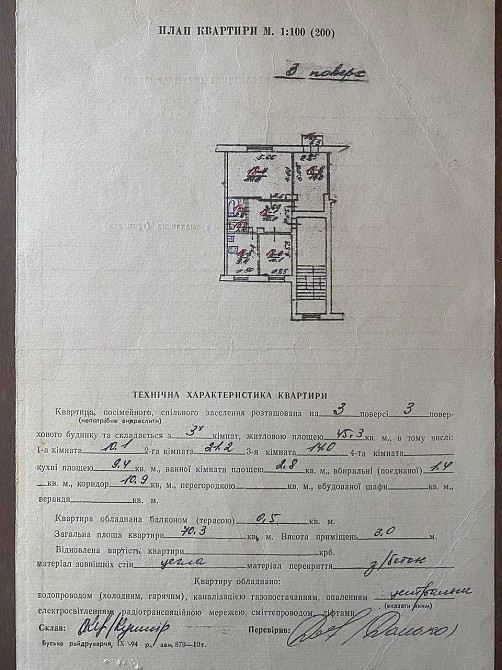 ПЛАН КВАРТИРИ М. 1:100 (200)
3 поверх
ТЕХНІЧНА ХАРАКТЕРИСТИКА КВАРТИРИ
Квартира, посімейного, спільного заселення розташована на 3 поверсі 3 повер-
(непотрібне викреслити)
хового будинку та складається з 3х кімнат, житловою площею 45.3 кв. м., в тому числі:
1-а кімната 10.1 2-га кімната 21.2 3-я кімната 14.0 4-та кімната
кухні площею 9.4 кв. м., ванної кімнати площею 2.8 кв. м., вбиральні (поєднаної) 1.4
кв. м., коридор 10.9 кв. м., перегородкою кв. м., вбудованої шафи кв. м.,
веранди кв. м.
Квартира обладнана балконом (терасою) 0,5 кв. м.
Загальна площа квартири 70.3 кв. м. Висота приміщень 3,0 м.
Відновлена вартість квартири крб.
матеріал зовнішніх стін цегла матеріал перекриття з/бетон
Квартиру обладнано:
водопроводом (холодним, гарячим), каналізацією газопостачанням, опаленням центральним
(вказати яким)
електросвітленням, радіотрансляційною мережею, сміттєпроводом, ліфтами.
Склав: Кушнір Перевірив:
Буська райдрукарня, ІХ-94 р., зам. 879—10т.